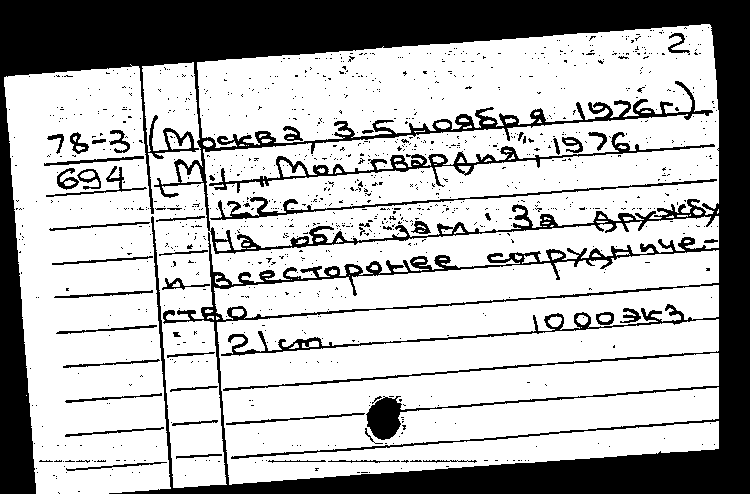 2
78-3 (Москва, 3-5 ноября 1976г.)
694 [М.], „Мол. гвардия", 1976.
122 с.
На обл. загл.: За дружбу
и всесторонее сотрудниче-
ство.
21 cm. 1000 экз.